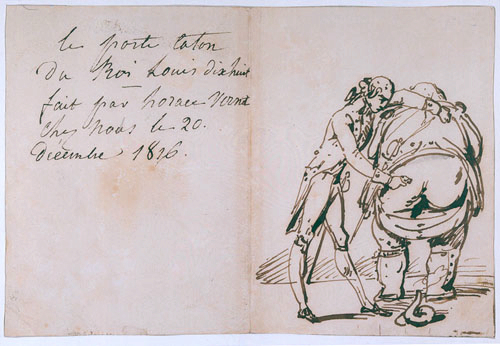 Le porte coton
du Roi Louis dixhuit
fait par horace Vernet
chez nous le 20.
décembre 1816.